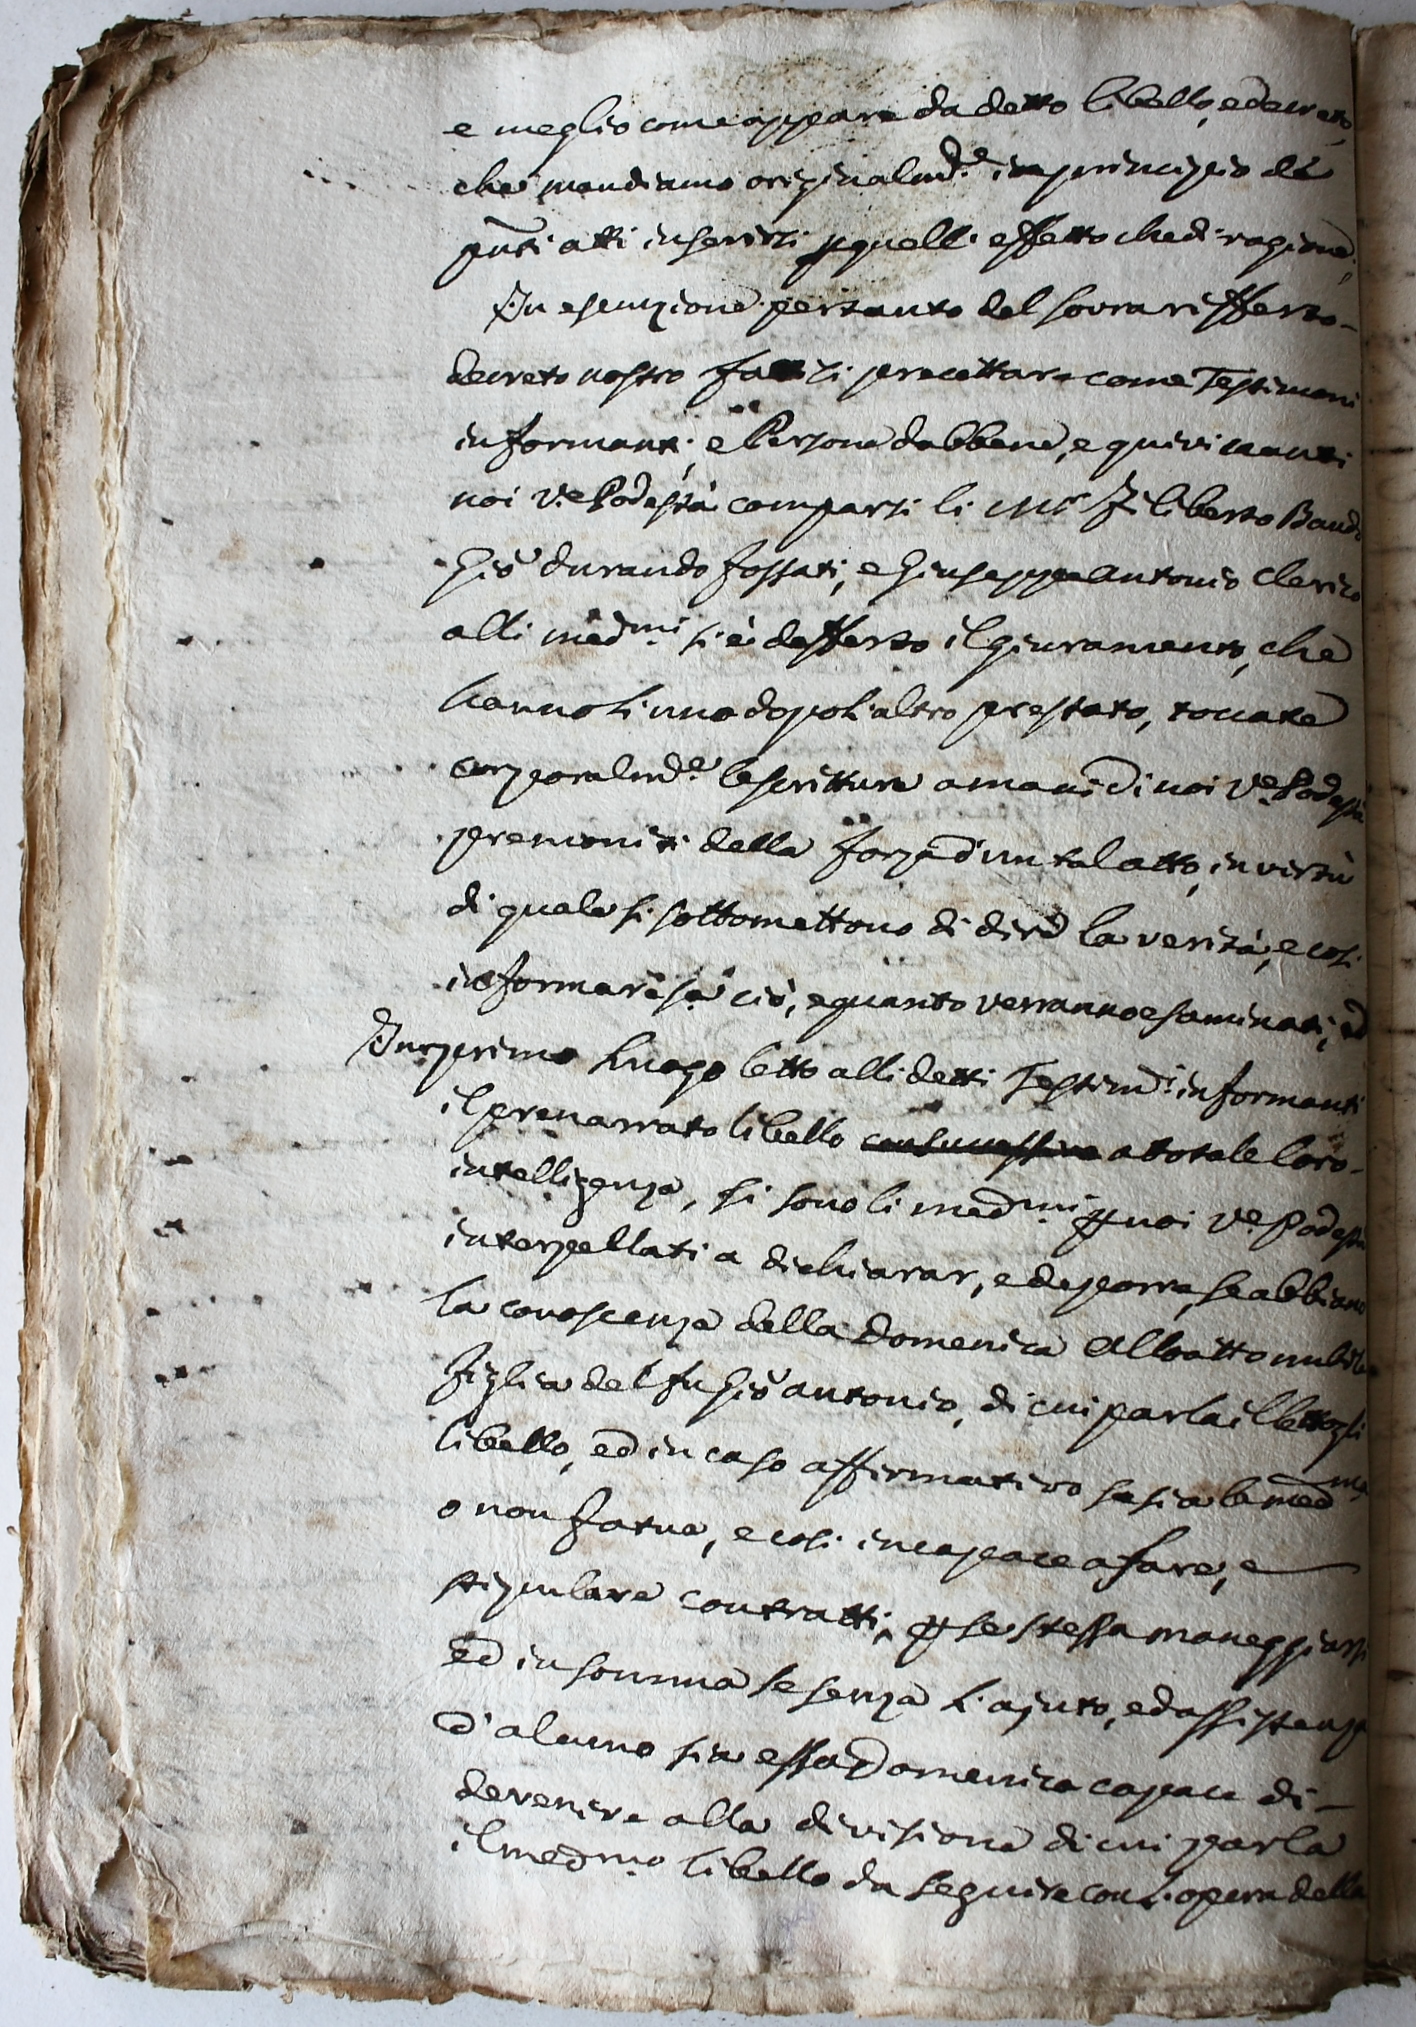 e meglio come appare da detto libello, e decreto,
che mandiamo originalmd.e in principio de
pnti atti inserirsi p quell'effetto che di ragione,
In esecuzione pertanto del sovra riffertto
decreto nostro fattisi precettare come Testimoni
informanti, e Persone dabbene, e quivi nanti
noi V.e Podestà comparsi li mr Filiberto Baud
Gio durando fossati, e Giuseppe antonio Clerico
alli medmi si è defferto il giuramento, che
hanno l'uno dopo l'altro prestato, toccate
corporalmd.e le scritture a mani di noi V.e Podestà
premoniti della forza d'un tal atto, in virtù
di quale si sottomettono di dire la verità, e così
informare sà ciò, e quanto verranno esaminati, ed
In primo luogo letto alli detti Testimd.i informanti
il prenarrato libello a totale loro
intelligenza, si sono li medmi p noi V.e Podestà
interpellati a dichiarar, e deporre, se abbiano
la conoscenza della Domenica Alloatto nubile
figlia del fu Gio antonio, di cui parla il lettogli
libello, ed in caso affirmativo se sia la medma
o non fatua, e così incapace a fare, e
stipulare contratti, p se stessa maneggiarsi
ed in somma se senza l'ajuto, ed assistenza
d'alcuno sia essa Domenica capace di
devenire alla divisione di cui parla
il medmo libello da seguire con l'opera della